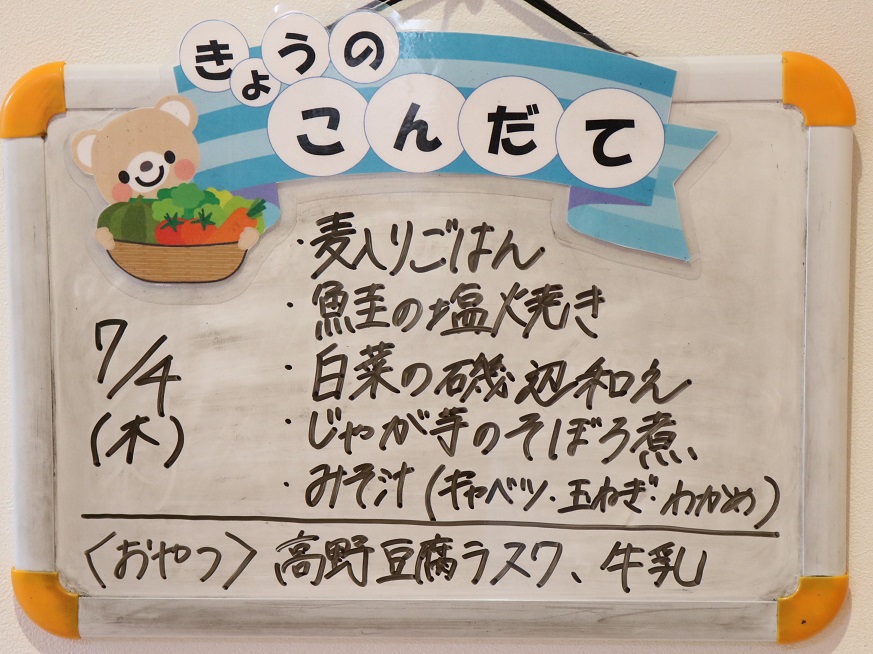 きょうの
こんだて
・麦入りごはん
・鮭の塩焼き
・白菜の磯辺和え
・じゃが芋のそぼろ煮
・みそ汁(キャベツ・玉ねぎ・わかめ)
7/4
(木)
〈おやつ〉高野豆腐ラスク、牛乳